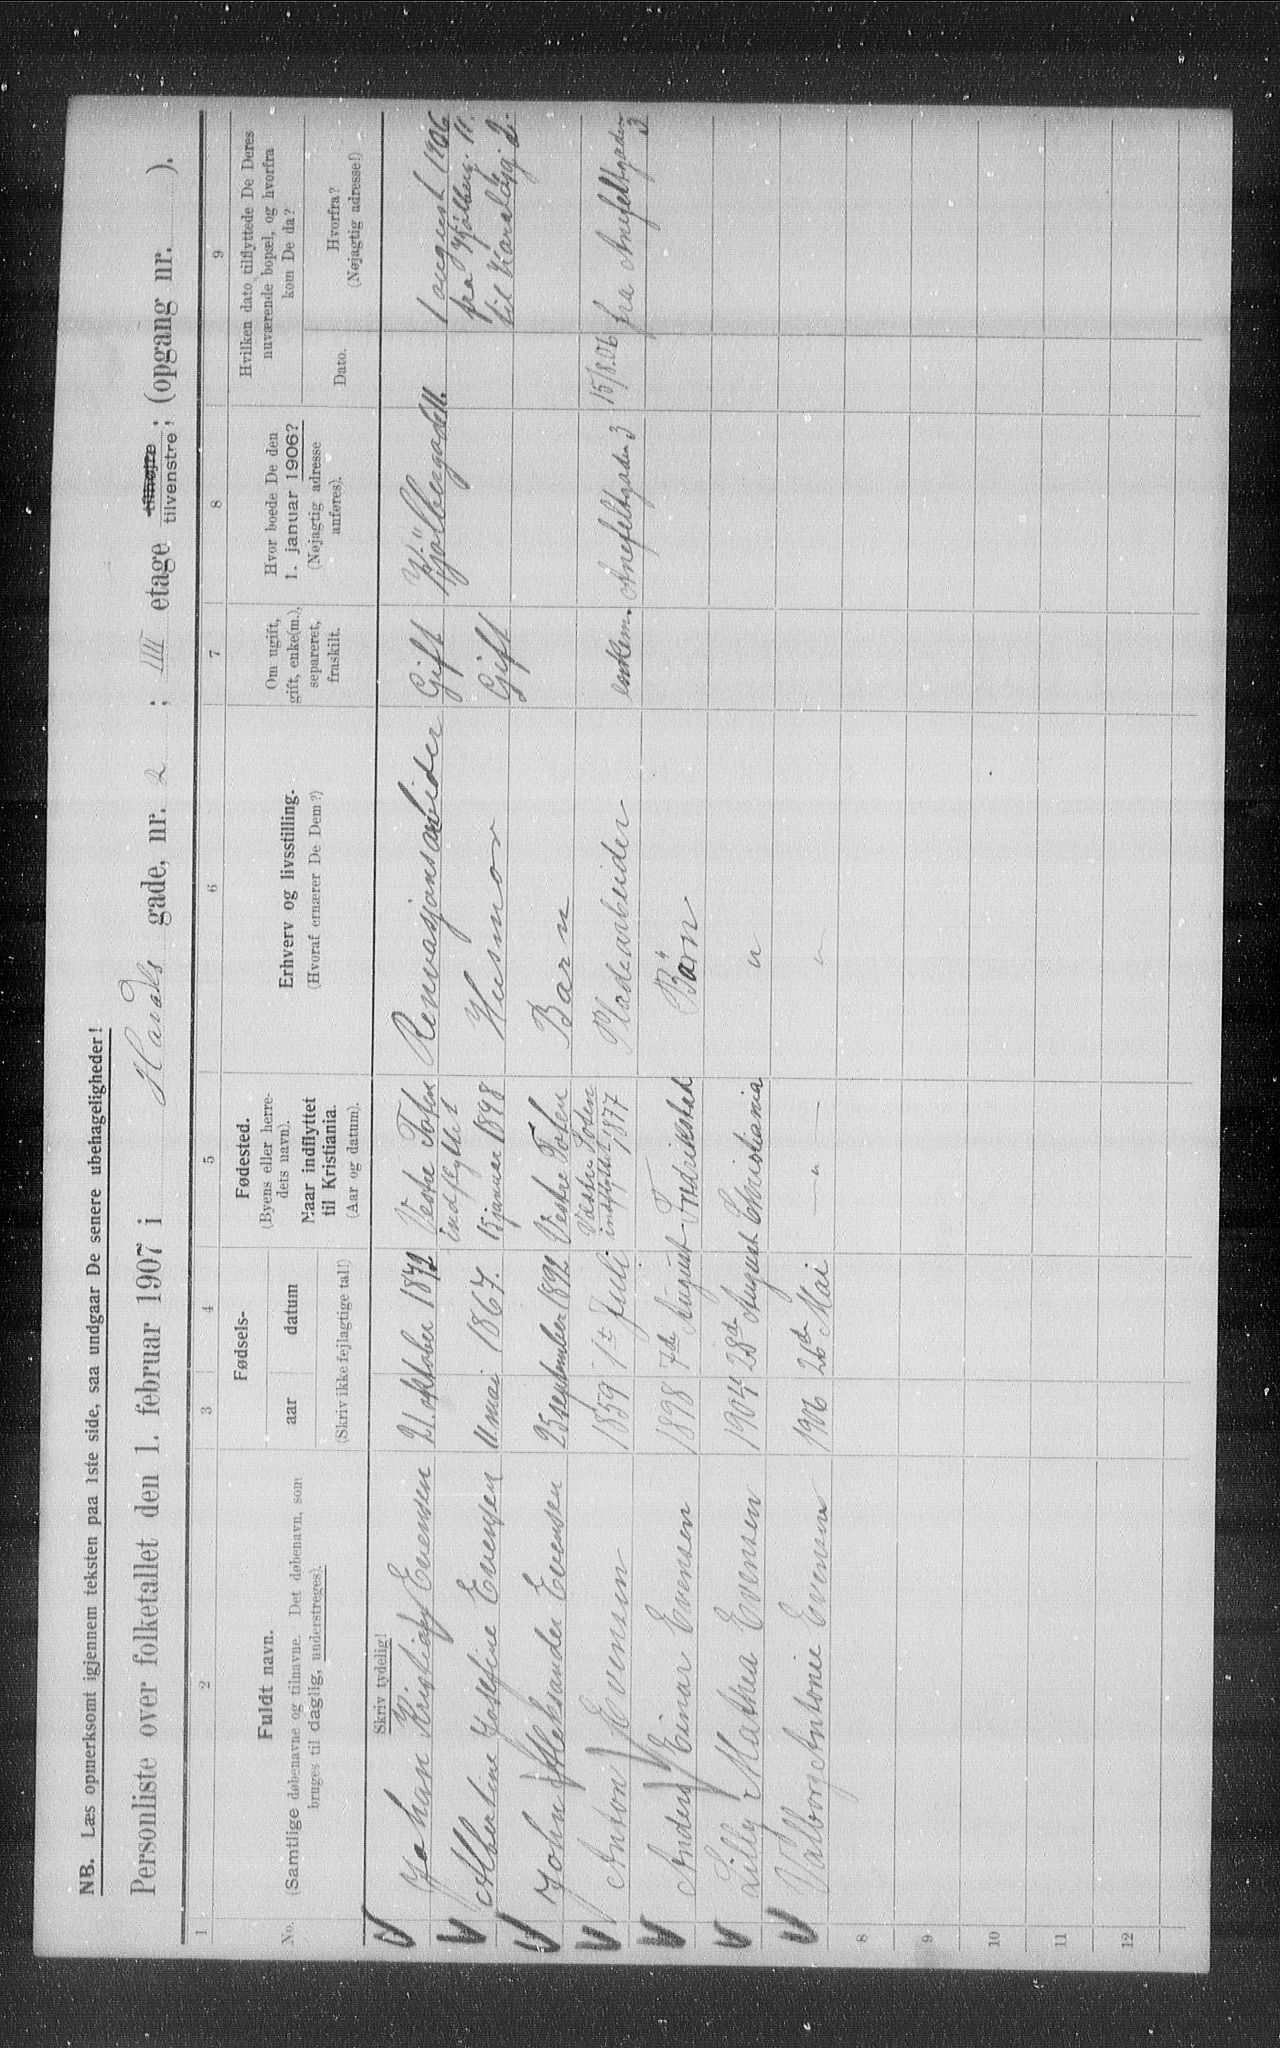 NB. Læs opmerksomt igjennem teksten paa 1ste side, saa undgaar De senere ubehageligheder!
Personliste over folketallet den 1. februar 1907 i Haralds gade, nr. 2 ; IIII etage tilhøjre tilvenstre ; (opgang nr. ).
1 2 3 4 5 6 7 8 9
No.
Fuldt navn.
(Samtlige døbenavne og tilnavne. Det døbenavn, som
bruges til daglig, understreges).
Fødsels-
aar datum
(Skriv ikke fejlagtige tal!)
Fødested.
(Byens eller herre-
dets navn).
Naar indflyttet
til Kristiania.
(Aar og datum).
Erhverv og livsstilling.
(Hvoraf ernærer De Dem?)
Om ugift,
gift, enke(m.),
separeret,
fraskilt.
Hvor boede De den
1. januar 1906?
(Nøjagtig adresse
anføres).
Hvilken dato tilflyttede De Deres
nuværende bopæl, og hvorfra
kom De da?
Dato.
Hvorfra?
(Nøjagtig adresse!)
Skriv tydelig!
Johan Kristian Evensen 21 oktober 1872 Vestre Toten indflyttet Gift 1 august 1906
Albertine Josefine Evensen 11 mai 1867. 15 januar 1898 Husmor Gift
John Aleksander Evensen 25 september 1892 Vestre Toten Barn
Anton Evensen 1859 1ste Juli Vestre Toten indflyttet 1877 Pladearbeider enkem. 3 15/8 06 fra 3
Anders Einar Evensen 1898 7de August Fredrikstad Barn
Lilly Mathea Evensen 1904 28de August Christiania "
Valborg Antonie Evensen 1906 26de Mai — " — "
8
9
10
11
12